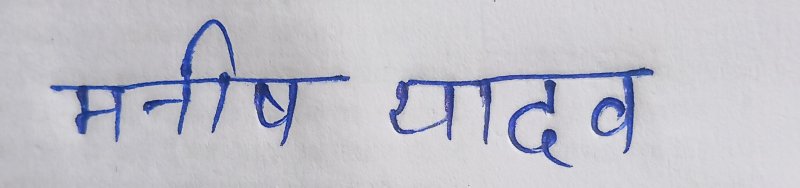 मनीष यादव